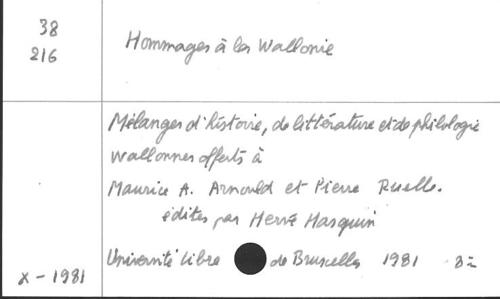 38
216
Hommages à la Wallonie
Mélanges d'histoire, de littérature et de philologie
wallonnes offerts à
Maurice A. Arnould et Pierre Ruelle.
édites par Hervé Hasquin
Université Libre de Bruxelles 1981
X - 1981